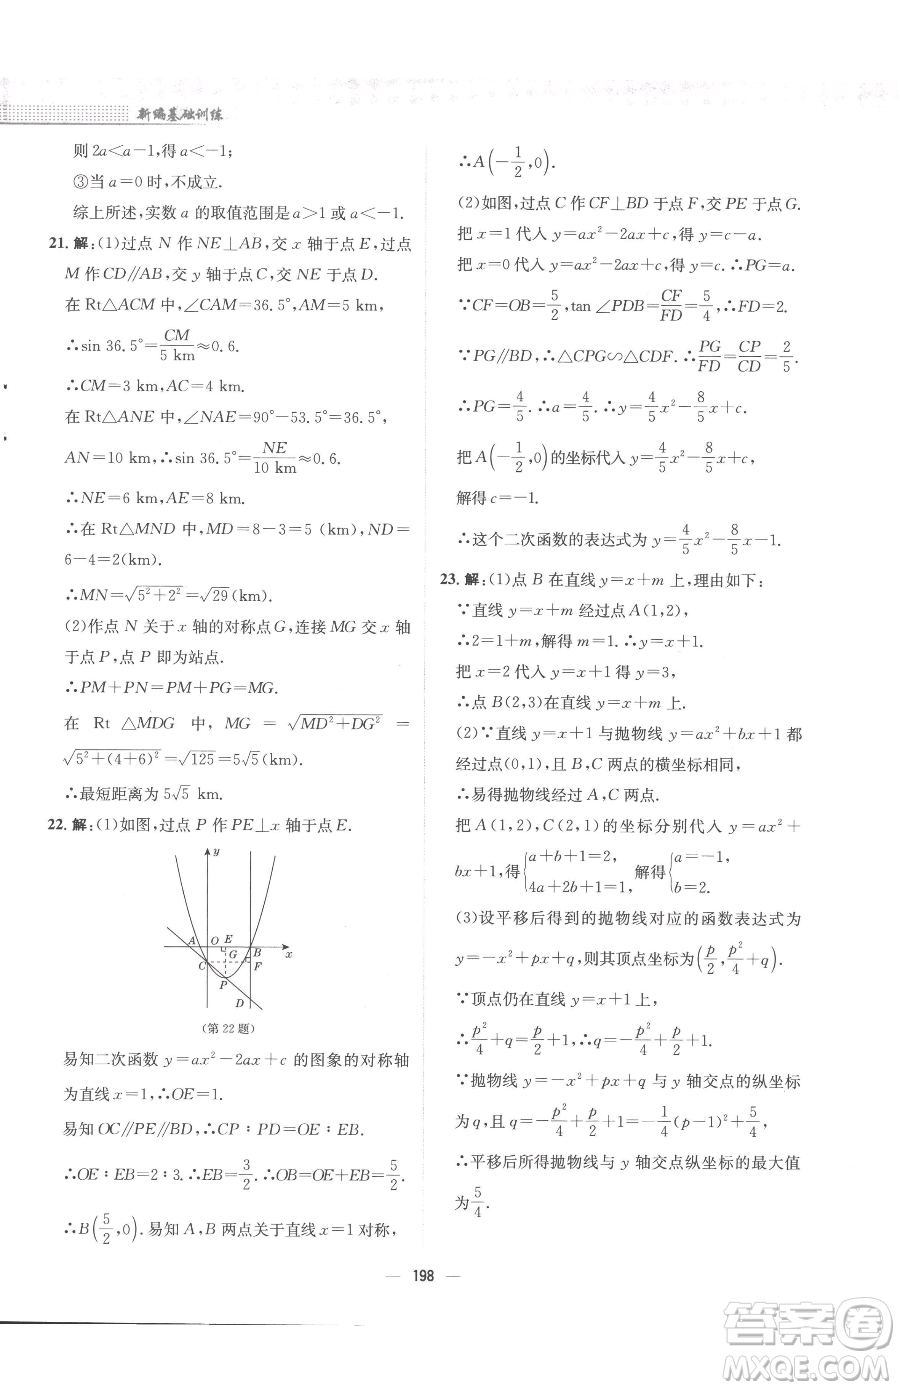 新编基础训练
则 2a<a−1,得 a<−1;
③当 a=0 时,不成立.
综上所述,实数 a 的取值范围是 a>1 或 a<−1.
21. 解:(1)过点 N 作 NE⊥AB,交 x 轴于点 E,过点
M 作 CD∥AB,交 y 轴于点 C,交 NE 于点 D.
在 Rt△ACM 中,∠CAM=36.5°,AM=5 km,
∴sin 36.5°=CM/5 km≈0.6.
∴CM=3 km,AC=4 km.
在 Rt△ANE 中,∠NAE=90°−53.5°=36.5°,
AN=10 km,∴sin 36.5°=NE/10 km≈0.6.
∴NE=6 km,AE=8 km.
∴在 Rt△MND 中,MD=8−3=5 (km),ND=
6−4=2(km).
∴MN=√(5²+2²)=√29(km).
(2)作点 N 关于 x 轴的对称点 G,连接 MG 交 x 轴
于点 P,点 P 即为站点.
∴PM+PN=PM+PG=MG.
在 Rt △MDG 中, MG = √(MD²+DG²) =
√(5²+(4+6)²)=√125=5√5(km).
∴最短距离为 5√5 km.
22. 解:(1)如图,过点 P 作 PE⊥x 轴于点 E.
y
A O E B x
G
C F
P
D
(第 22 题)
易知二次函数 y=ax²−2ax+c 的图象的对称轴
为直线 x=1,∴OE=1.
易知 OC∥PE∥BD,∴CP∶PD=OE∶EB.
∴OE∶EB=2∶3.∴EB=3/2.∴OB=OE+EB=5/2.
∴B(5/2,0).易知 A,B 两点关于直线 x=1 对称,
∴A(−1/2,0).
(2)如图,过点 C 作 CF⊥BD 于点 F,交 PE 于点 G.
把 x=1 代入 y=ax²−2ax+c 得 y=c−a.
把 x=0 代入 y=ax²−2ax+c 得 y=c.∴PG=a.
∵CF=OB=5/2,tan ∠PDB=CF/FD=5/4,∴FD=2.
∵PG∥BD,∴△CPG∽△CDF.∴PG/FD=CP/CD=2/5.
∴PG=4/5.∴a=4/5.∴y=4/5x²−8/5x+c.
把 A(−1/2,0)的坐标代入 y=4/5x²−8/5x+c,
解得 c=−1.
∴这个二次函数的表达式为 y=4/5x²−8/5x−1.
23. 解:(1)点 B 在直线 y=x+m 上,理由如下:
∵直线 y=x+m 经过点 A(1,2),
∴2=1+m,解得 m=1.∴y=x+1.
把 x=2 代入 y=x+1 得 y=3,
∴点 B(2,3)在直线 y=x+m 上.
(2)∵直线 y=x+1 与抛物线 y=ax²+bx+1 都
经过点(0,1),且 B,C 两点的横坐标相同,
∴易得抛物线经过 A,C 两点.
把 A(1,2),C(2,1)的坐标分别代入 y=ax²+
bx+1,得{a+b+1=2, 4a+2b+1=1, 解得{a=−1, b=2.
(3)设平移后得到的抛物线对应的函数表达式为
y=−x²+px+q,则其顶点坐标为(p/2,p²/4+q).
∵顶点仍在直线 y=x+1 上,
∴p²/4+q=p/2+1.∴q=−p²/4+p/2+1.
∵抛物线 y=−x²+px+q 与 y 轴交点的纵坐标
为 q,且 q=−p²/4+p/2+1=−1/4(p−1)²+5/4,
∴平移后所得抛物线与 y 轴交点纵坐标的最大值
为5/4.
— 198 —
答案圈
MXQE.COM